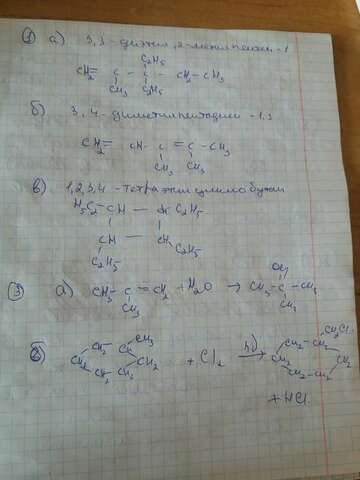 ① а) 3,3-диэтил, 2-метилпентен-1
C₂H₅
CH₂= C - C - CH₂-CH₃
CH₃ C₂H₅
б) 3,4-диметилпентадиен-1,3
CH₂= CH-C = C-CH₃
CH₃ CH₃
в) 1,2,3,4-тетраэтилциклобутан
H₅C₂-CH - C₂H₅
CH - CH
C₂H₅ C₂H₅
③ а) CH₃-C=CH₂ +H₂O → CH₃-C-CH₃
OH
CH₃ CH₃
б) CH₂ CH-CH₃
CH₂ CH₂
CH₂ CH₂
+ Cl₂ hν →
CH₂Cl
CH₂-CH₂
CH₂
CH₂-CH₂
+ HCl